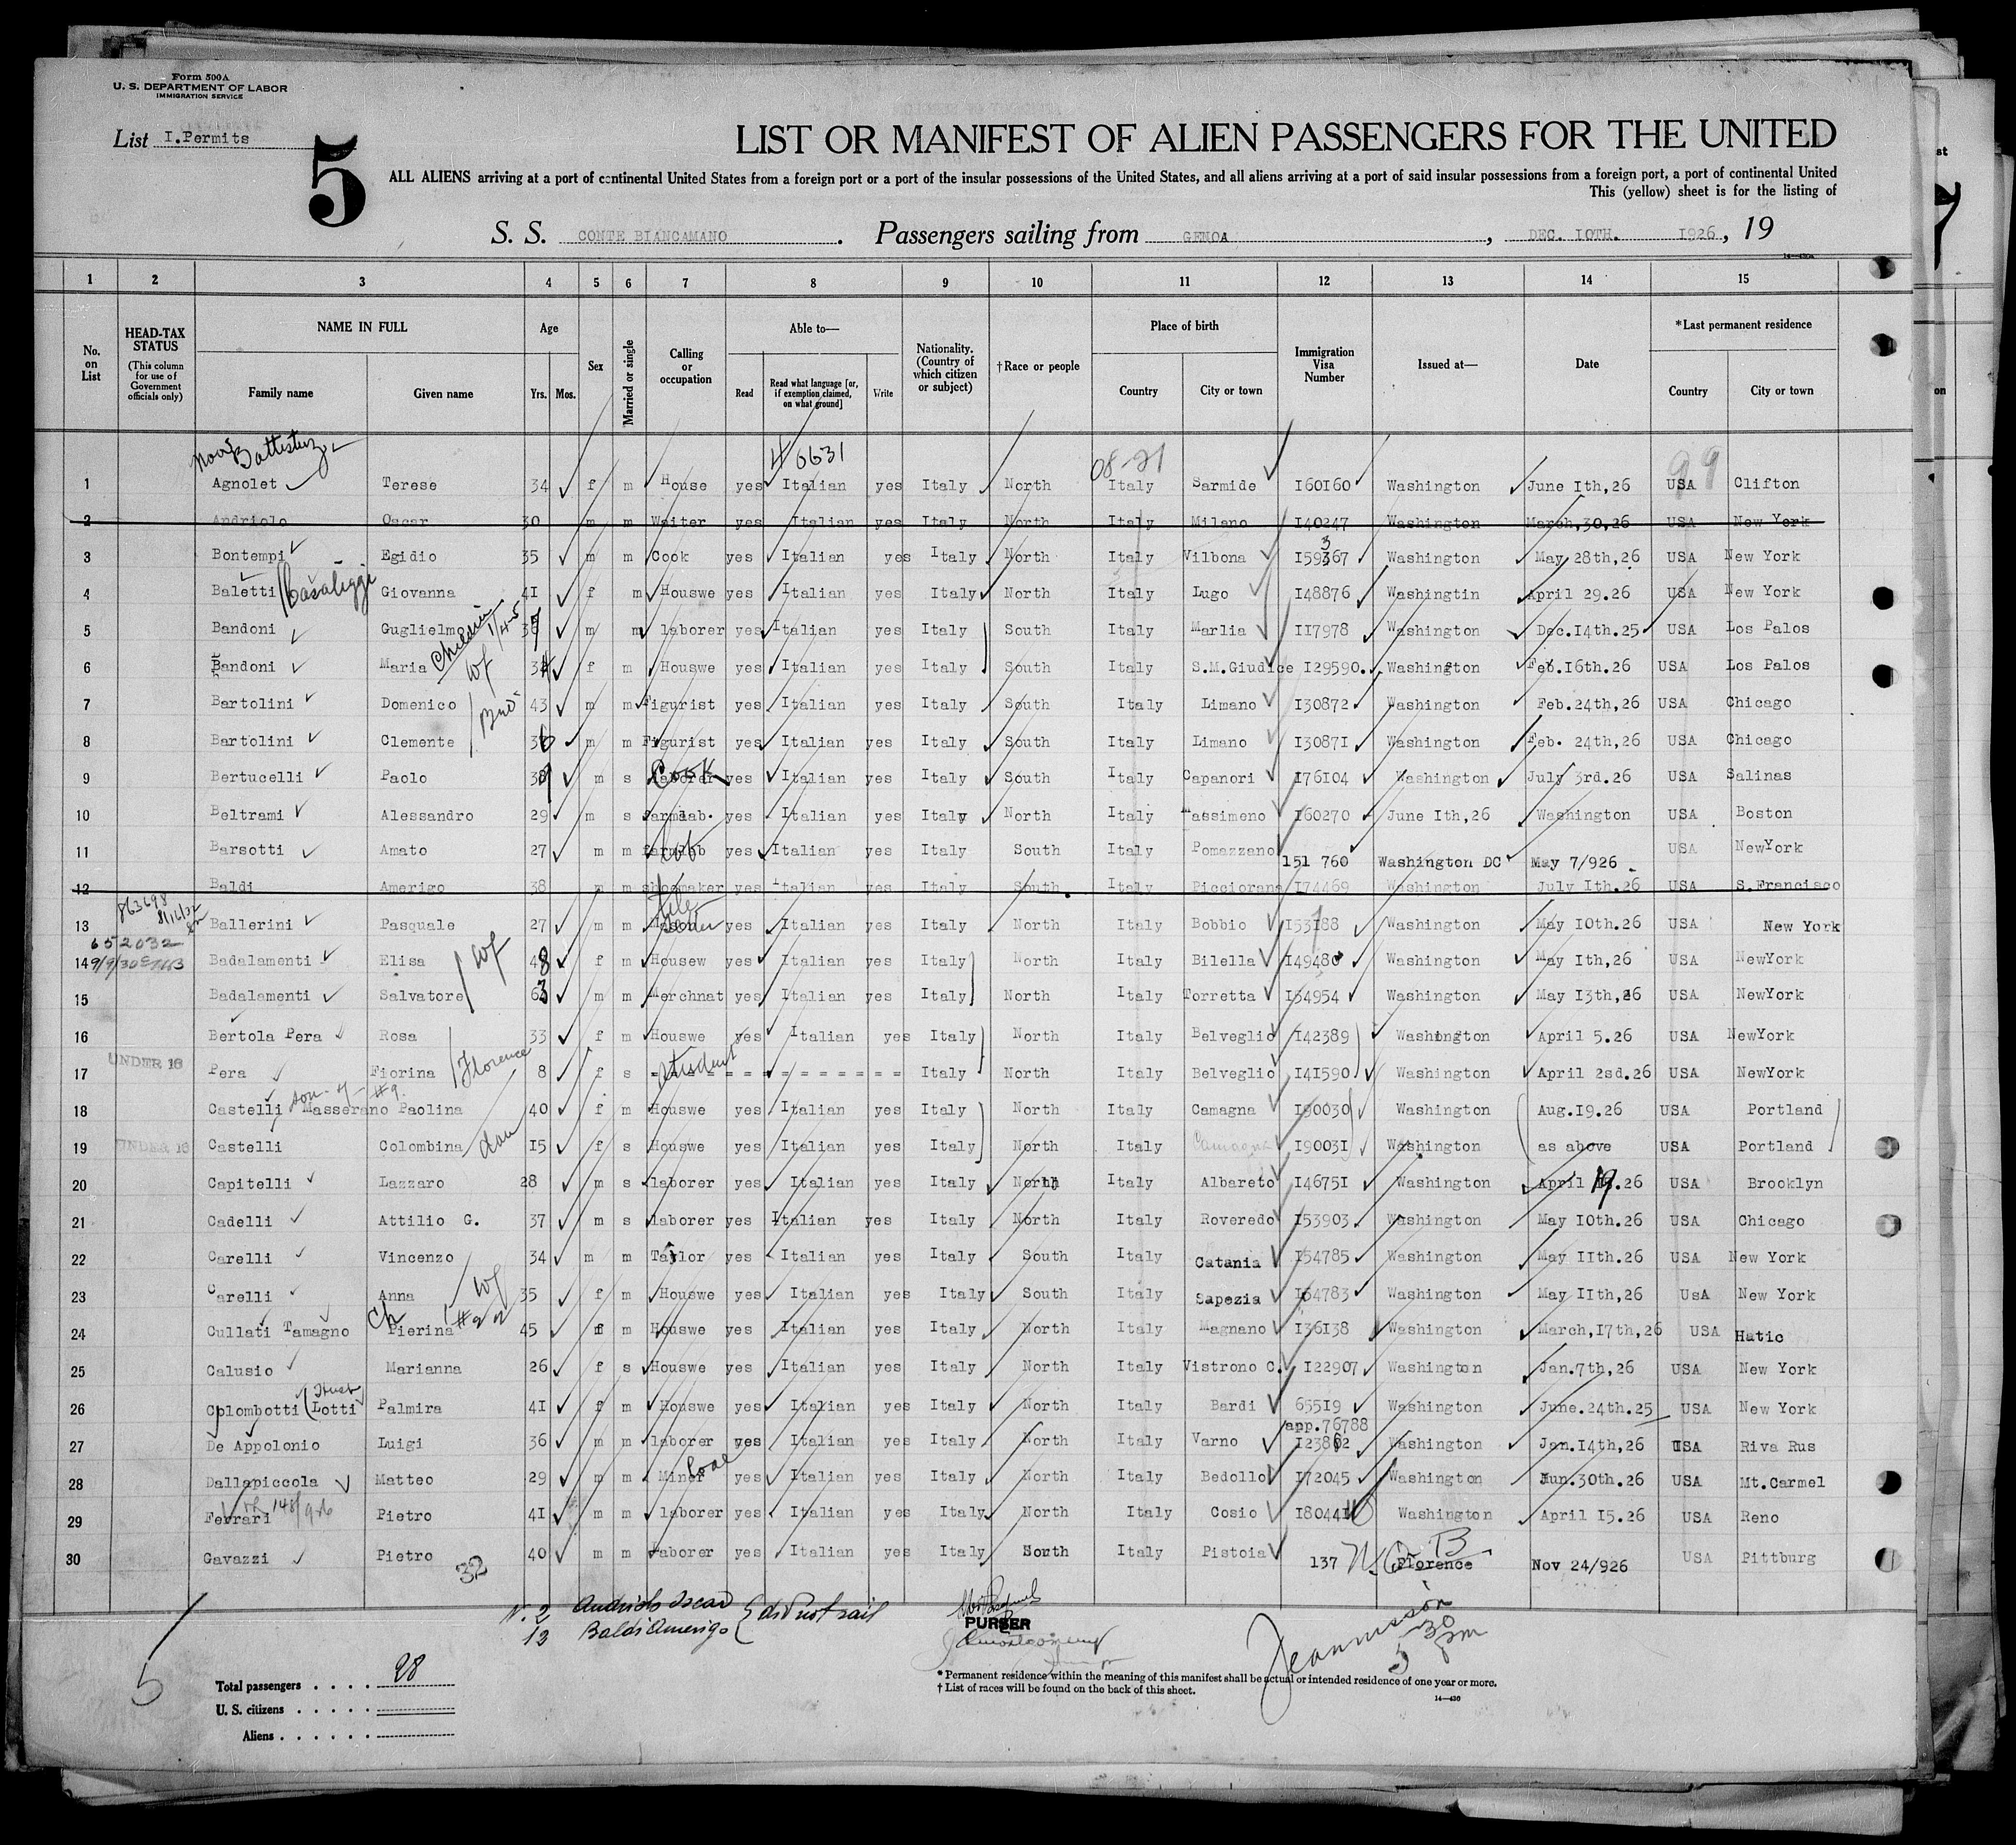 Form 500A
U. S. DEPARTMENT OF LABOR
IMMIGRATION SERVICE
List I.Permits
5
LIST OR MANIFEST OF ALIEN PASSENGERS FOR THE UNITED
ALL ALIENS arriving at a port of continental United States from a foreign port or a port of the insular possessions of the United States, and all aliens arriving at a port of said insular possessions from a foreign port, a port of continental United
This (yellow) sheet is for the listing of
S. S. CONTE BIANCAMANO. Passengers sailing from GENOA, DEC. IOTH. I926, 19
14—430a
1 2 3 4 5 6 7 8 9 10 11 12 13 14 15
No. on List
HEAD-TAX STATUS (This column for use of Government officials only)
NAME IN FULL Family name Given name
Age Yrs. Mos.
Sex
Married or single
Calling or occupation
Able to— Read Read what language [or, if exemption claimed, on what ground] Write
Nationality. (Country of which citizen or subject)
†Race or people
Place of birth Country City or town
Immigration Visa Number
Issued at—
Date
*Last permanent residence Country City or town
46631 08-21 99
1 Agnolet Terese 34 f m House yes Italian yes Italy North Italy Sarmide I60I60 Washington June Ith,26 USA Clifton
2 Andriolo Oscar 30 m m Waiter yes Italian yes Italy North Italy Milano I40247 Washington March,30,26 USA New York
3 Bontempi Egidio 35 m m Cook yes Italian yes Italy North Italy Vilbona I59367 Washington May 28th,26 USA New York
4 Baletti Casaliggi Giovanna 4I f m Houswe yes Italian yes Italy North Italy Lugo I48876 Washingtin April 29.26 USA New York
5 Bandoni Guglielmo 37 m m laborer yes Italian yes Italy South Italy Marlia II7978 Washington Dec.I4th.25 USA Los Palos
6 Bandoni Maria wf 34 f m Houswe yes Italian yes Italy South Italy S.M.Giudice I29590. Washington Feb.I6th.26 USA Los Palos
7 Bartolini Domenico 43 m m Figurist yes Italian yes Italy South Italy Limano I30872 Washington Feb.24th,26 USA Chicago
8 Bartolini Clemente 36 m m Figurist yes Italian yes Italy South Italy Limano I3087I Washington Feb. 24th,26 USA Chicago
9 Bertucelli Paolo 39 m s Cook yes Italian yes Italy South Italy Capanori I76I04 Washington July 3rd.26 USA Salinas
10 Beltrami Alessandro 29 m s farmlab. yes Italian yes Italy North Italy Massimeno I60270 June Ith,26 Washington USA Boston
11 Barsotti Amato 27 m m farmlab yes Italian yes Italy South Italy Pomazzano 151 760 Washington DC May 7/926 USA NewYork
12 Baldi Amerigo 38 m m shoemaker yes Italian yes Italy South Italy Picciorana I74469 Washington July Ith.26 USA S.Francisco
863698
13 Ballerini Pasquale 27 m m yes Italian yes Italy North Italy Bobbio I53I88 Washington May I0th.26 USA New York
652032
14 Badalamenti Elisa wf 48 f m Housew yes Italian yes Italy North Italy Bilella I49480 Washington May Ith,26 USA NewYork
15 Badalamenti Salvatore 63 m m Merchnat yes Italian yes Italy North Italy Torretta I54954 Washington May I3th,26 USA NewYork
16 Bertola Pera Rosa 33 f m Houswe yes Italian yes Italy North Italy Belveglio I42389 Washington April 5.26 USA NewYork
UNDER 16
17 Pera Fiorina Florence 8 f s student Italy North Italy Belveglio I4I590 Washington April 2sd.26 USA NewYork
18 Castelli Masserano Paolina 40 f m Houswe yes Italian yes Italy North Italy Camagna I90030 Washington Aug.I9.26 USA Portland
UNDER 16
19 Castelli Colombina dau I5 f s Houswe yes Italian yes Italy North Italy Camagna I9003I Washington as above USA Portland
20 Capitelli Lazzaro 28 m s laborer yes Italian yes Italy North Italy Albareto I4675I Washington April 19.26 USA Brooklyn
21 Cadelli Attilio G. 37 m s laborer yes Italian yes Italy North Italy Roveredo I53903 Washington May I0th.26 USA Chicago
22 Carelli Vincenzo 34 m m Taylor yes Italian yes Italy South Italy Catania I54785 Washington May IIth.26 USA New York
23 Carelli Anna wf #22 35 f m Houswe yes Italian yes Italy South Italy Sapezia I54783 Washington May IIth,26 UsA New York
24 Cullati Tamagno Pierina 45 f m Houswe yes Italian yes Italy North Italy Magnano I36I38 Washington March,I7th,26 USA Hatic
25 Calusio Marianna 26 f s Houswe yes Italian yes Italy North Italy Vistrono C. I22907 Washington Jan.7th,26 USA New York
26 Colombotti (Lotti Palmira 4I f m Houswe yes Italian yes Italy North Italy Bardi 655I9 Washington June.24th.25 USA New York
app.76788
27 De Appolonio Luigi 36 m m laborer yes Italian yes Italy North Italy Varno I23862 Washington Jan.I4th,26 USA Riva Rus
28 Dallapiccola Matteo 29 m m Miner Coal yes Italian yes Italy North Italy Bedollo I72045 Washington Jun.30th.26 USA Mt.Carmel
29 Ferrari Pietro 4I m m laborer yes Italian yes Italy North Italy Cosio I8044I Washington April I5.26 USA Reno
30 Gavazzi Pietro 40 m m laborer yes Italian yes Italy South Italy Pistoia 137 N.Q. Florence Nov 24/926 USA Pittburg
32
N. 2 Andriolo Oscar
12 Baldi Amerigo } did not sail
PURSER
Jeannisson
5 30 pm
5
Total passengers . . . . 28
U. S. citizens . . . . .
Aliens . . . . . .
*Permanent residence within the meaning of this manifest shall be actual or intended residence of one year or more.
†List of races will be found on the back of this sheet.
14—430